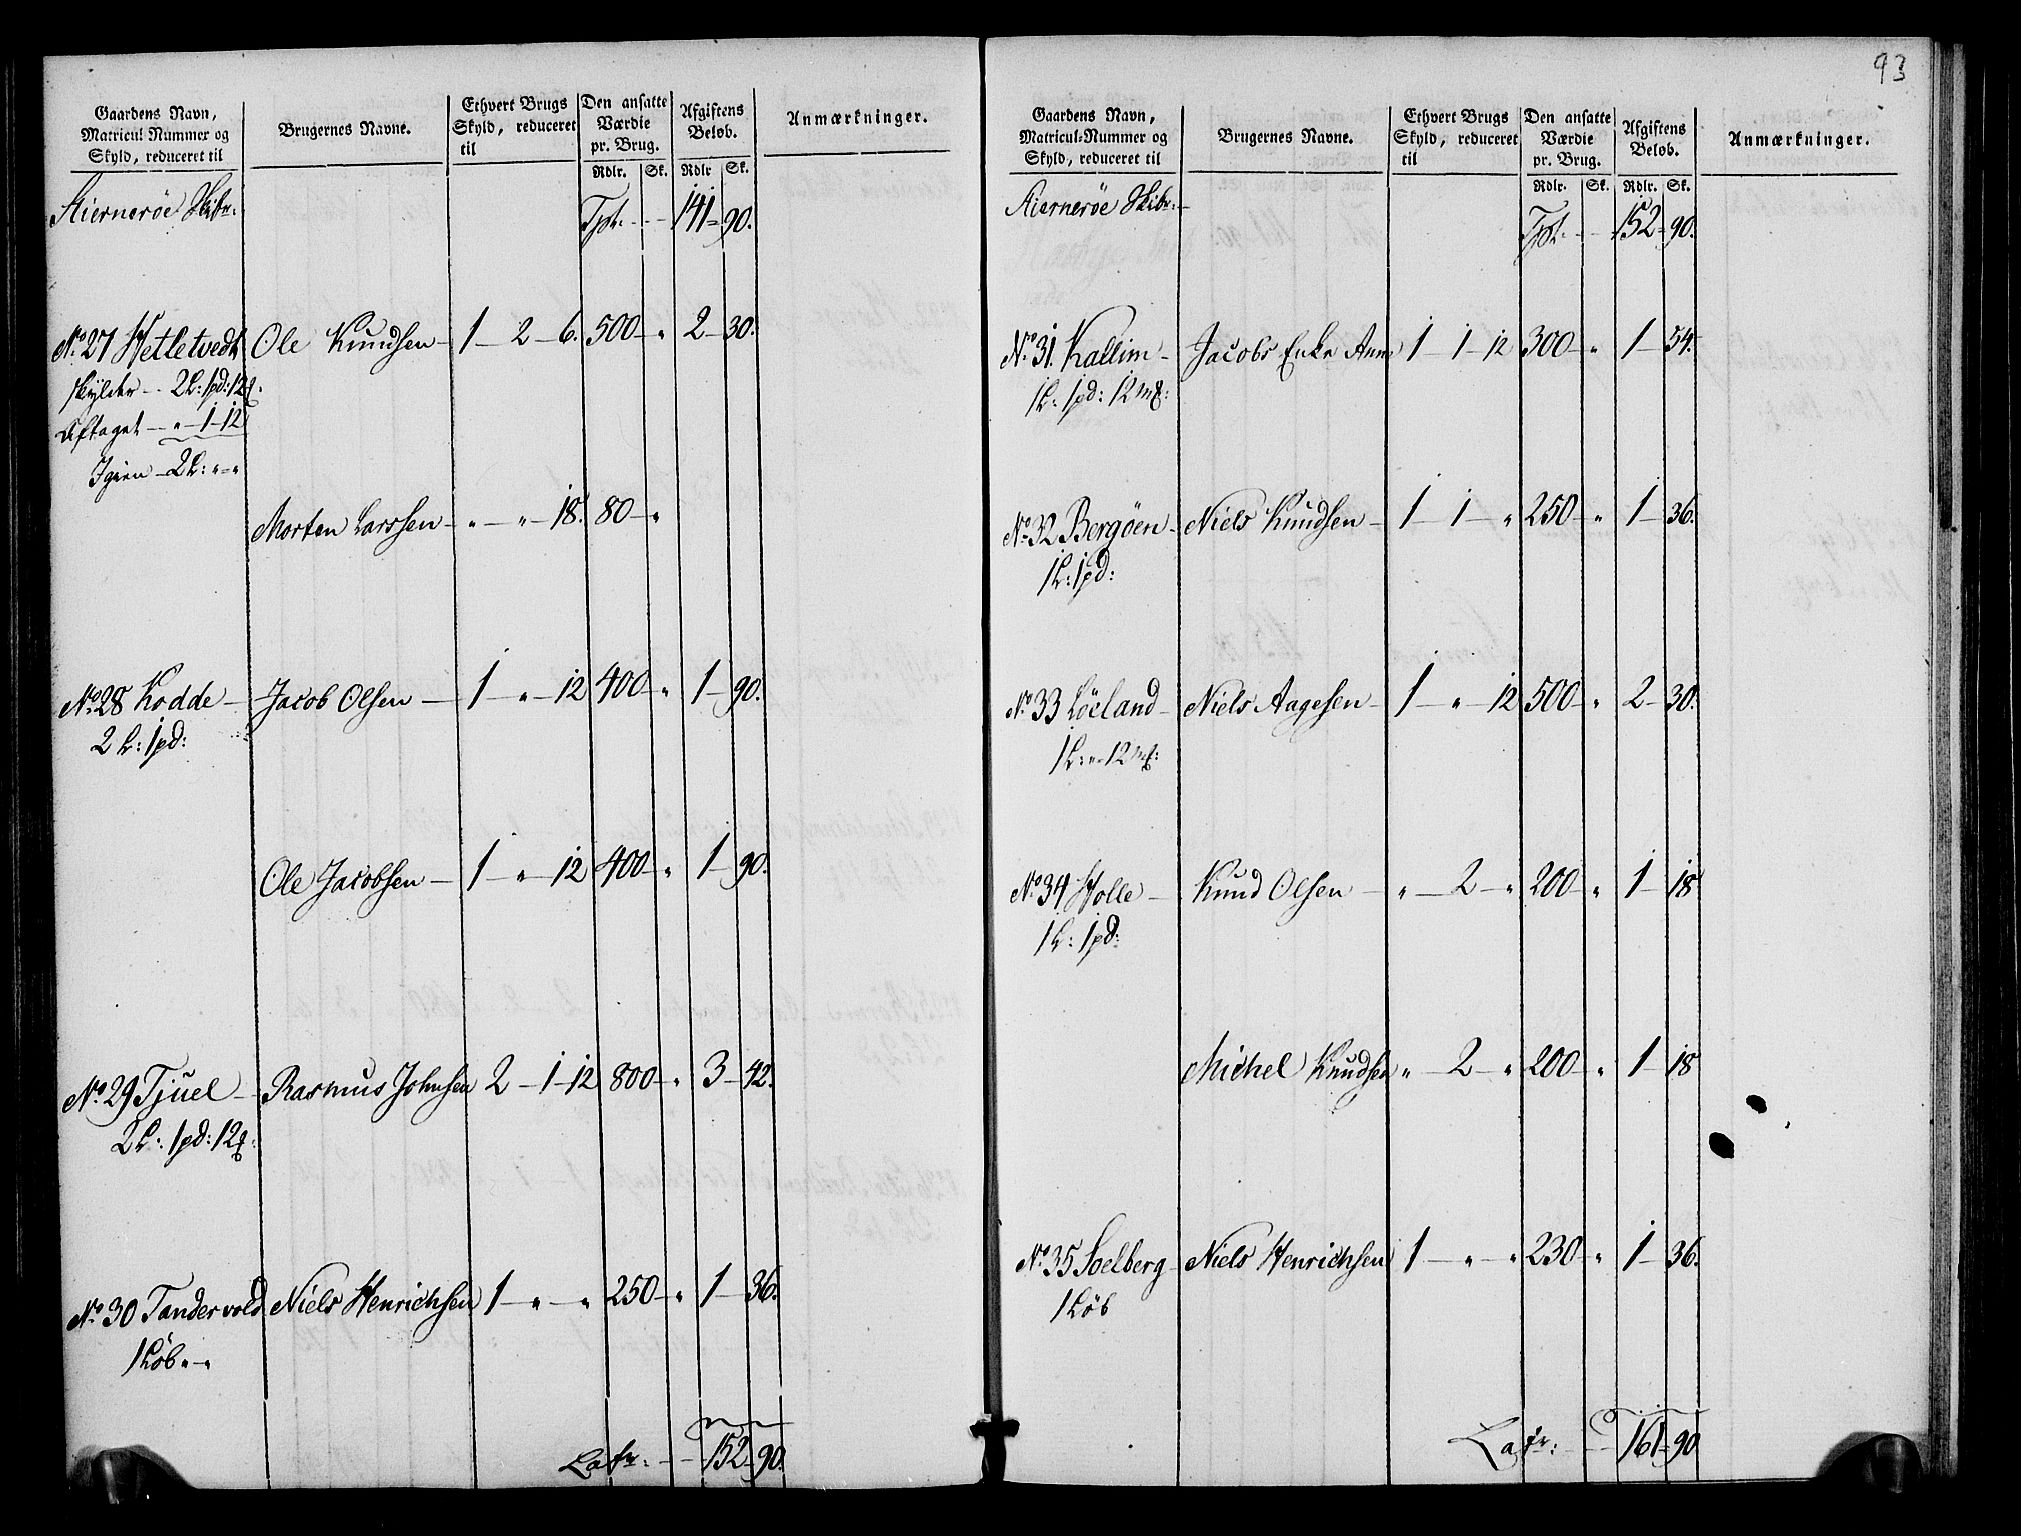 Gaardens Navn, Matricul Nummer og Skyld, reduceret til | Brugernes Navne. | Ethvert Brugs Skyld, reduceret til | Den ansatte Værdie pr. Brug. Rdlr. Sk. | Afgiftens Beløb. Rdlr Sk. | Anmærkninger.
Stiernerøe Skibr: Tpt. -- 141 = 90.
No. 27 Hetletvedt Ole Knudsen – 1 – 2 – 6. 500 – " 2 – 30.
skylder -- 2 L: 1 pd: 12
Aftaget — " – 1 – 12
Igien – 2 L: " – "
Morten Larssen – " – " – 18. 80 – "
No. 28 Kodde – Jacob Olsen – 1 – " – 12 400 – " 1 – 90.
2 L: 1 pd:
Ole Jacobsen – 1 – " – 12 400 – " 1 – 90.
No. 29 Tjuel – Rasmus Johnsen 2 – 1 – 12 800 – " 3 – 42.
2 L: 1 pd: 12
No. 30 Tandervold Niels Henrichsen 1 – " – " 250 – " 1 – 36.
1 Løb " – "
Latr: -- 152 – 90.
93
Gaardens Navn, Matricul-Nummer og Skyld, reduceret til | Brugernes Navne. | Ethvert Brugs Skyld, reduceret til | Den ansatte Værdie pr. Brug. Rdlr. Sk. | Afgiftens Beløb. Rdlr. Sk. | Anmærkninger.
Stiernerøe Skibr: Tpt. -- 152 – 90.
No. 31. Kallim – Jacobs Enke Anne 1 – 1 – 12 300 – " 1 – 54.
1 L: 1 pd: 12 m:
No. 32 Bergøen – Niels Knudsen – 1 – 1 – " 250 – " 1 – 36.
1 L: 1 pd:
No. 33 Løeland – Niels Aagesen – 1 – " – 12 500 – " 2 – 30.
1 L: " – 12 m:
No. 34 Holle – Knud Olsen – " – 2 – " 200 – " 1 – 18
1 L: 1 pd:
Michel Knudsen " – 2 – " 200 – " 1 – 18
No. 35 Soelberg – Niels Henrichsen 1 – " – " 230 – " 1 – 36.
1 Løb
Latr: -- 161 = 90